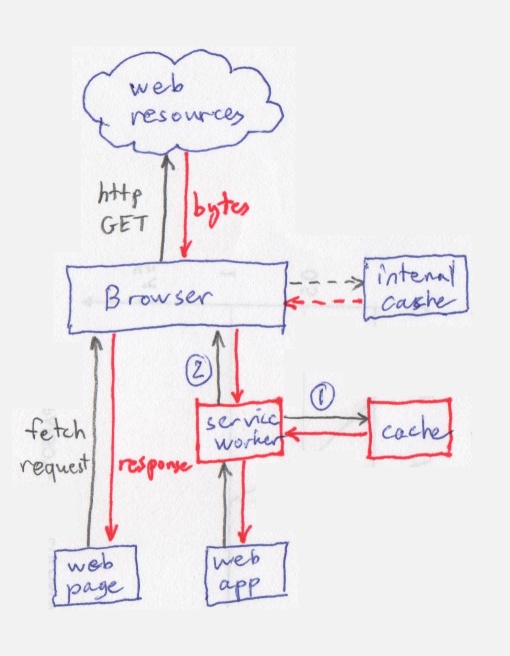 web
resources
http
GET
bytes
Browser
internal
cache
2
1
service
worker
cache
fetch
request
response
web
page
web
app